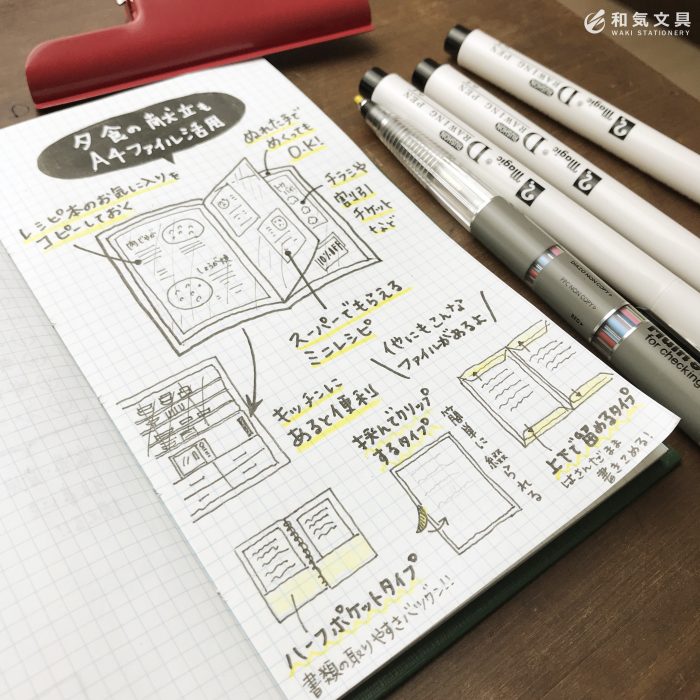 和気文具
WAKI STATIONERY
夕食の献立も
A4ファイル活用
レシピ本のお気に入りを
コピーしておく
ぬれた手で
めくっても
O.K!
チラシや
割引
チケット
なども
肉じゃが
しょうが焼
10%OFF
スーパーでもらえる
ミニレシピ
他にもこんな
ファイルがあるよ
キッチンに
あると便利
挟んでクリップ
するタイプ
簡単に綴られる
上下で留めるタイプ
はさんだまま
書きこめる!
ハーフポケットタイプ
書類の取りやすさバツグン!!
2 magic DRAWING PEN
2 magic DRAWING PEN
2 magic DRAWING PEN
DIAZO NON COPY
PPC NON COPY
for checking